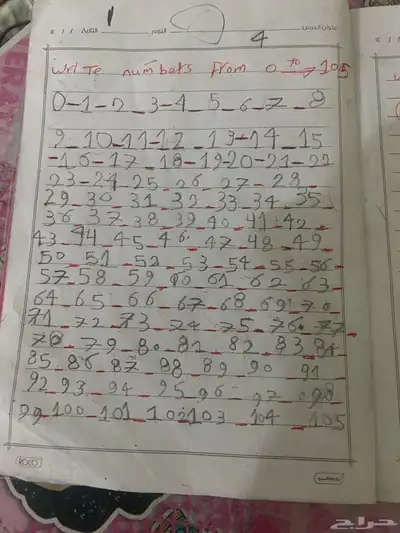 1
4
write numbers from 0 to 105
0-1-2_3-4_5_6-7_8
9_10-11-12_13-14_15
-16-17_18-19-20-21-22
23-24-25_26_27-28
29_30_31_32_33_34_35
36_37_38_39_40_41_42_
43_44_45_46_47_48_49_
50_51_52_53_54_55_56_
57_58_59_60_61_62_63
64_65_66_67_68_69_70
71_72_73_74_75_76_77_
78_79_80_81_82_83_84
85_86_87_88_89_90_91
92_93_94_95_96_97_98
99_100_101_102_103_104_105
ROCO
حراج